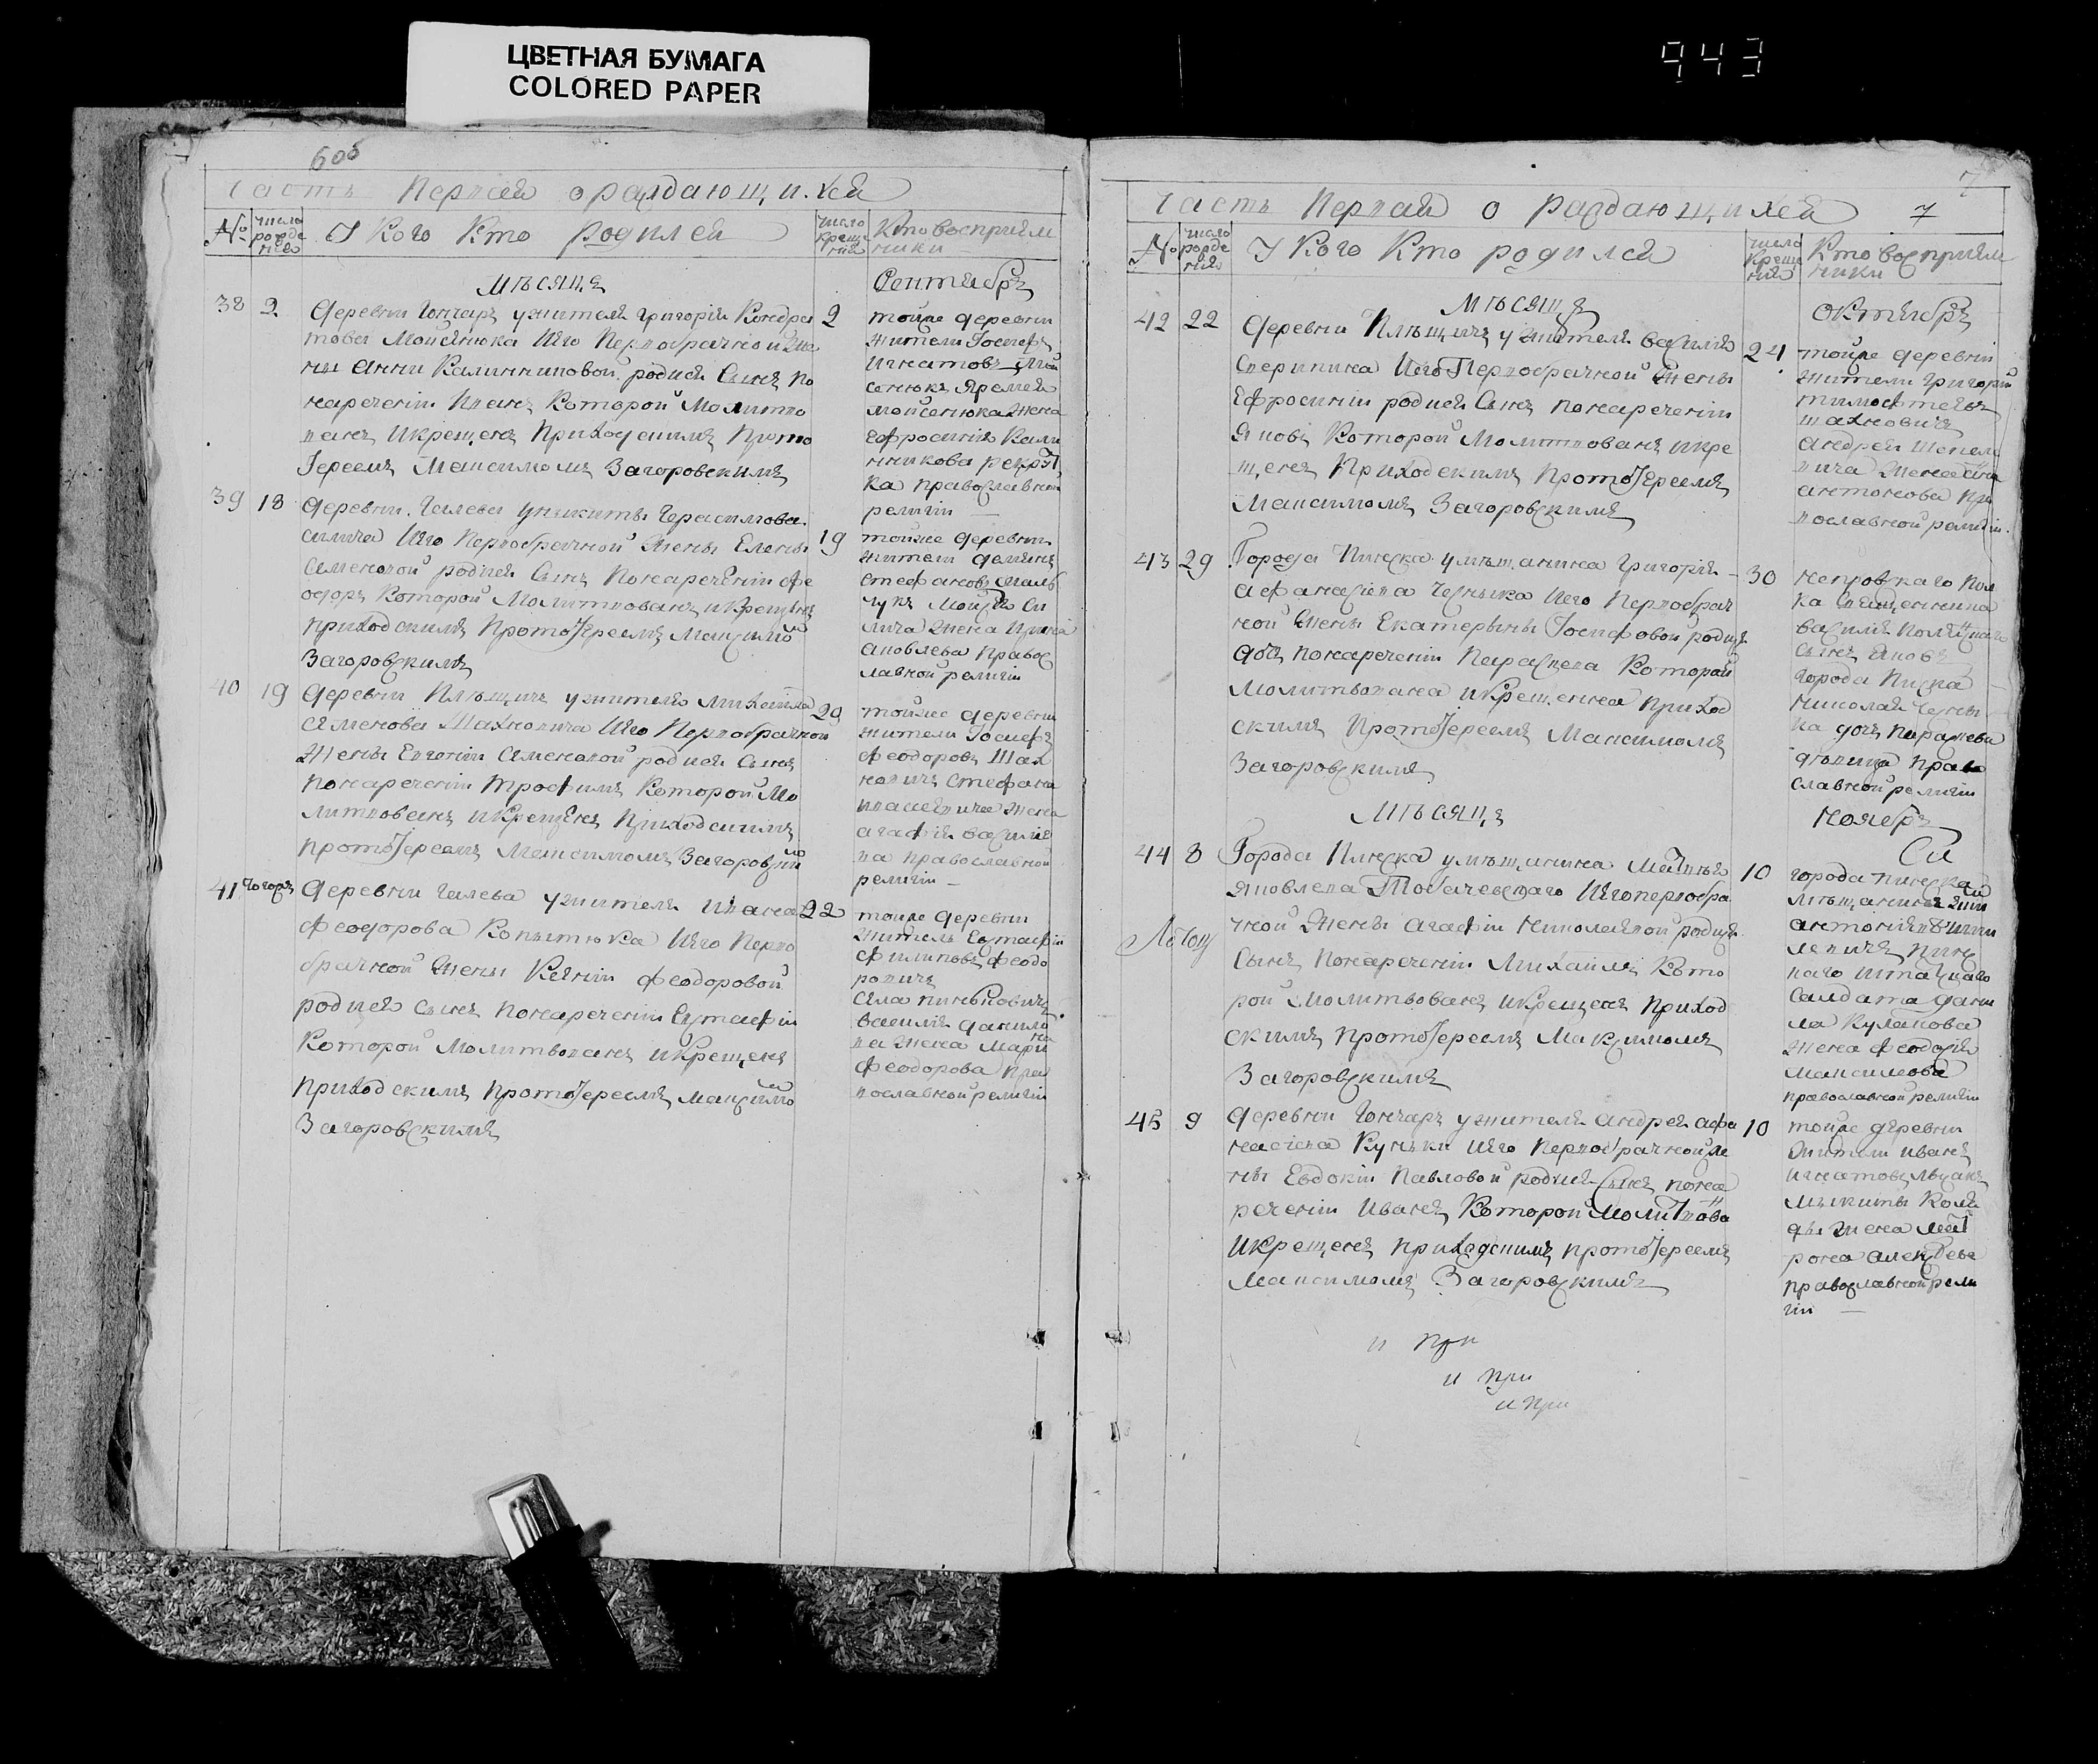 ЦВЕТНАЯ БУМАГА
COLORED PAPER
943
606
Часть Первая о раждающихся
№
число рожде ния
У Кого Кто родился
число креще ния
Кто восприем ники
Мѣсяцъ
Сентябрь
38 2 Деревни Гончаръ ужителя Григорія Кондра 2
това Мойсѣнюка Иего Первобрачной Же
ны Анны Калинниковой родися Сынъ по
наречении Иванъ Которой Молитво
ванъ Икрещенъ Приходскимъ Прото
Іереемъ Максимомъ Загоровскимъ
тойже деревни
жители Іосифъ
Игнатовъ Мой
сенюкъ Яремея
Мойсенюка Жена
Ефросинія Кали
нникова
ка православной
религіи
39 18 Деревни Галева Уникиты Герасимова 19
силича Иего Первобрачной Жены Елены
Семеновой родися Сынъ Понареченіи Фе
одоръ Которой Молитвованъ икрещенъ
приходскимъ ПротоІереемъ Максимо
Загоровскимъ
тойже деревни
жители Демянъ
Стефановъ
чукъ Мойсея Си
лича Жена Ирина
Яковлева Правос
лавной религіи
40 19 Деревни Плещичъ ужителя Михаила 29
Семенова Махновича Иего Первобрачной
Жены Евгеніи Семеновой родися Сынъ
понареченіи Трофимъ Которой Мо
литвованъ икрещенъ Приходскимъ
протоІереемъ Максимомъ Загоровскій
тойже деревни
жители Іосифъ
Феодоровъ Шах
новичъ Стефана
жена
Агафія Василіе
ва православной
религіи
41 Деревни Галева ужителя Ивана 22
Феодорова Копытюка Иего Перво
брачной Жены Ксеніи Феодоровой
родися сынъ понареченіи Евстафій
Которой Молитвованъ икрещенъ
приходскимъ ПротоІереемъ Максимо
Загоровскимъ
тойже деревни
житель Евстафій
Филиповъ Феодо
ровичъ
Села Пинковичъ
Василія Данило
ва Жена Марина
Феодорова Пра
вославной религіи
7
Часть Первая о Раждающихся 7
№
число рожде ния
У Кого Кто родился
число креще ния
Кто восприем ники
Мѣсяцъ
Октябрь
42 22 Деревни Плѣщичъ ужителя Василія 24
Иего Первобрачной Жены
Ефросиніи родися Сынъ понареченіи
Яковъ Которой Молитвованъ икре
щенъ Приходскимъ ПротоІереемъ
Максимомъ Загоровскимъ
тойже деревни
жители Григорій
Тимофѣевъ
Шахновичъ
Андрея
вича Жена Анна
Антонова пра
вославной религіи.
43 29 Города Пинска умѣщанина Григорія 30
Афанасіева Черныка Иего Первобрач
ной Жены Екатерины Іосифовой родися
дочь понареченіи Параскева Которой
Молитвована икрещенна приход
скимъ ПротоІереемъ Максимомъ
Загоровскимъ
Пол
ка Священника
Василія
сынъ Яковъ
города Пинска
Николая Черны
ка дочь Параскева
девица Право
славной религіи
Мѣсяцъ
Ноябрь
44 8 Города Пинска умѣщанина Матвѣя 10
Яковлева Тобачевскаго Иегопервобра
чной Жены Агафіи Николаевой родися
Сынъ понареченіи Михаилъ Кото
рой Молитвованъ икрещенъ приход
скимъ протоІереемъ Максимомъ
Загоровскимъ
города Пинска
мѣщанинъ
Антоній
левичъ Пинс
каго Штатнаго
Салдата Дани
ла Кулакова
Жена Феодосія
Максимова
православной религіи
45 9 Деревни Гончаръ ужителя Андрея Афа 10
насіева Куньки Иего Первобрачной Же
ны Евдокіи Павловой родися Сынъ пона
реченіи Иванъ Которой Молитвова
Икрещенъ приходскимъ протоІереемъ
Максимомъ Загоровскимъ
тойже деревни
Жители Иванъ
Игнатовъ
Мыкиты Коля
ды жена Мат
рона Алексѣева
православной рели
гіи
и при
и при
и при